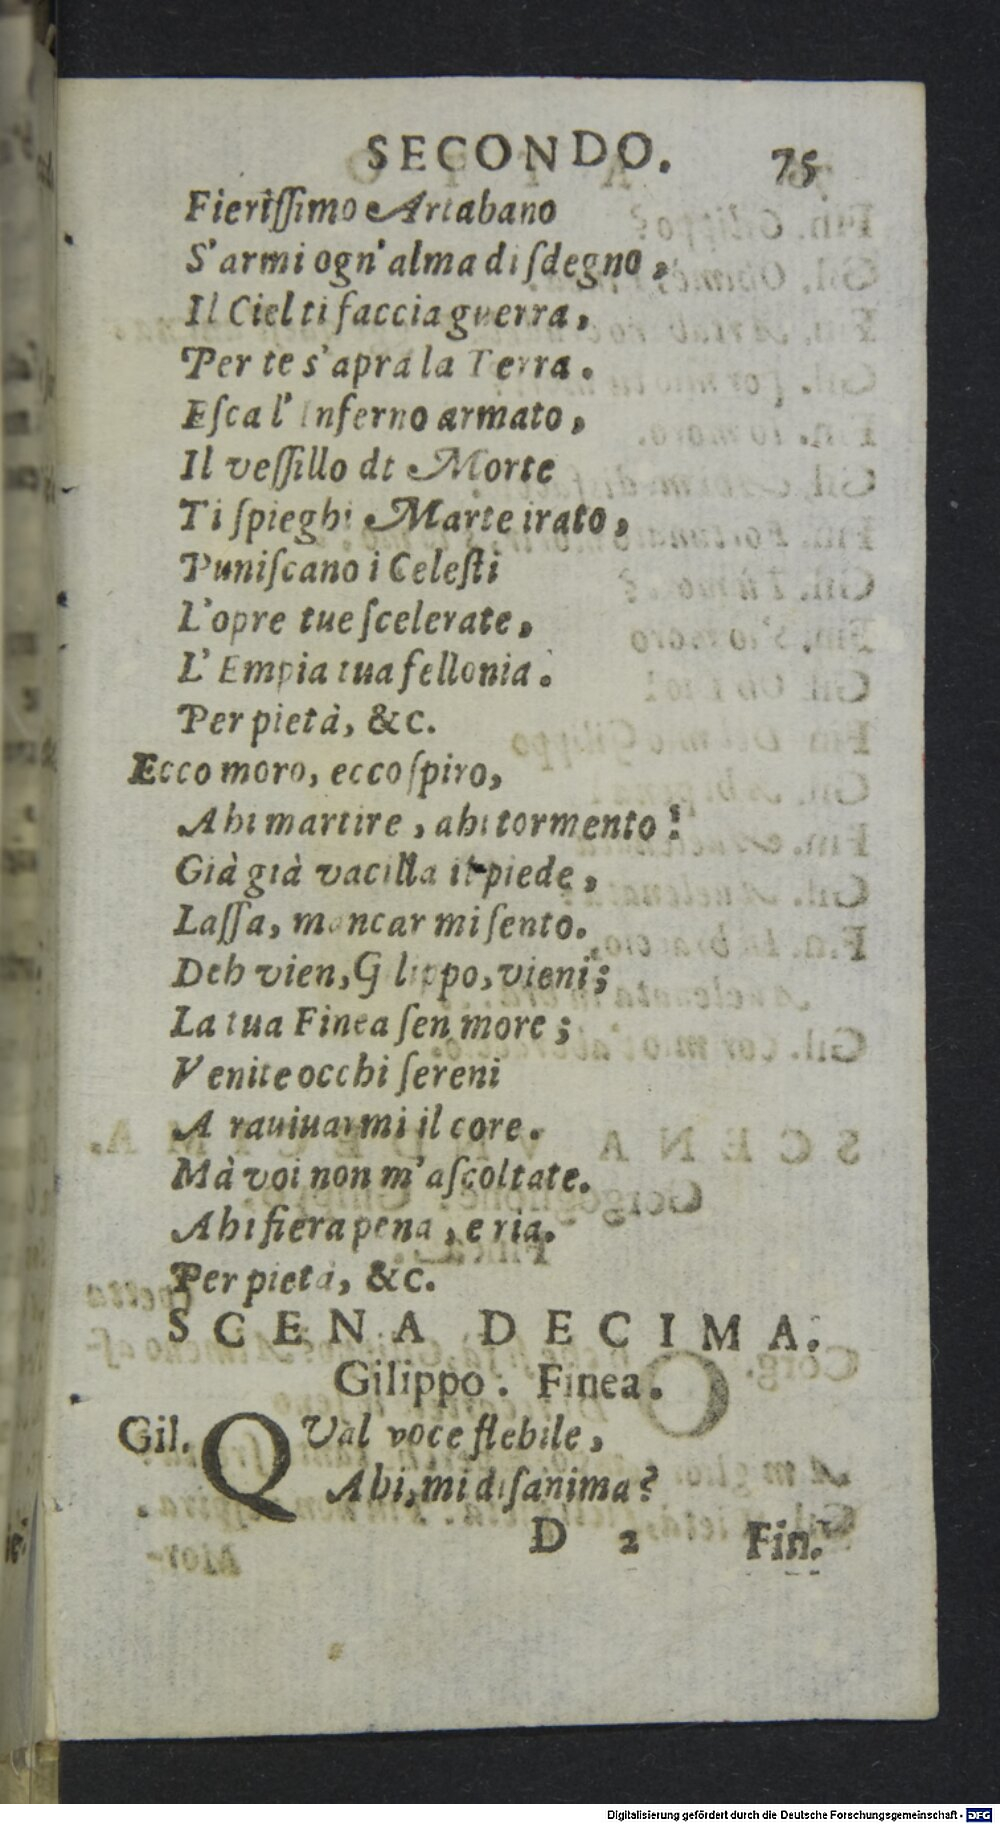 SECONDO. 75
Fierißimo Artabano
S'armi ogn'alma di ſdegno,
Il Ciel ti faccia guerra,
Per te s'apra la Terra.
Eſca l'Inferno armato,
Il veſſillo di Morte
Ti ſpieghi Marte irato,
Puniſcano i Celeſti
L'opre tue ſcelerate,
L'Empia tua fellonia.
Per pietà, &c.
Ecco moro, ecco ſpiro,
Ahi martire, ahi tormento!
Già già vacilla il piede,
Laſſa, mancar mi ſento.
Deh vien, Gilippo, vieni;
La tua Finea ſen more;
Venite occhi ſereni
A rauiuarmi il core.
Mà voi non m'aſcoltate.
Ahi fiera pena, e ria.
Per pietà, &c.
SCENA DECIMA.
Gilippo. Finea.
Gil. QVal voce flebile,
Ahi, mi diſanima?
D 2 Fin.
Digitalisierung gefördert durch die Deutsche Forschungsgemeinschaft - DFG